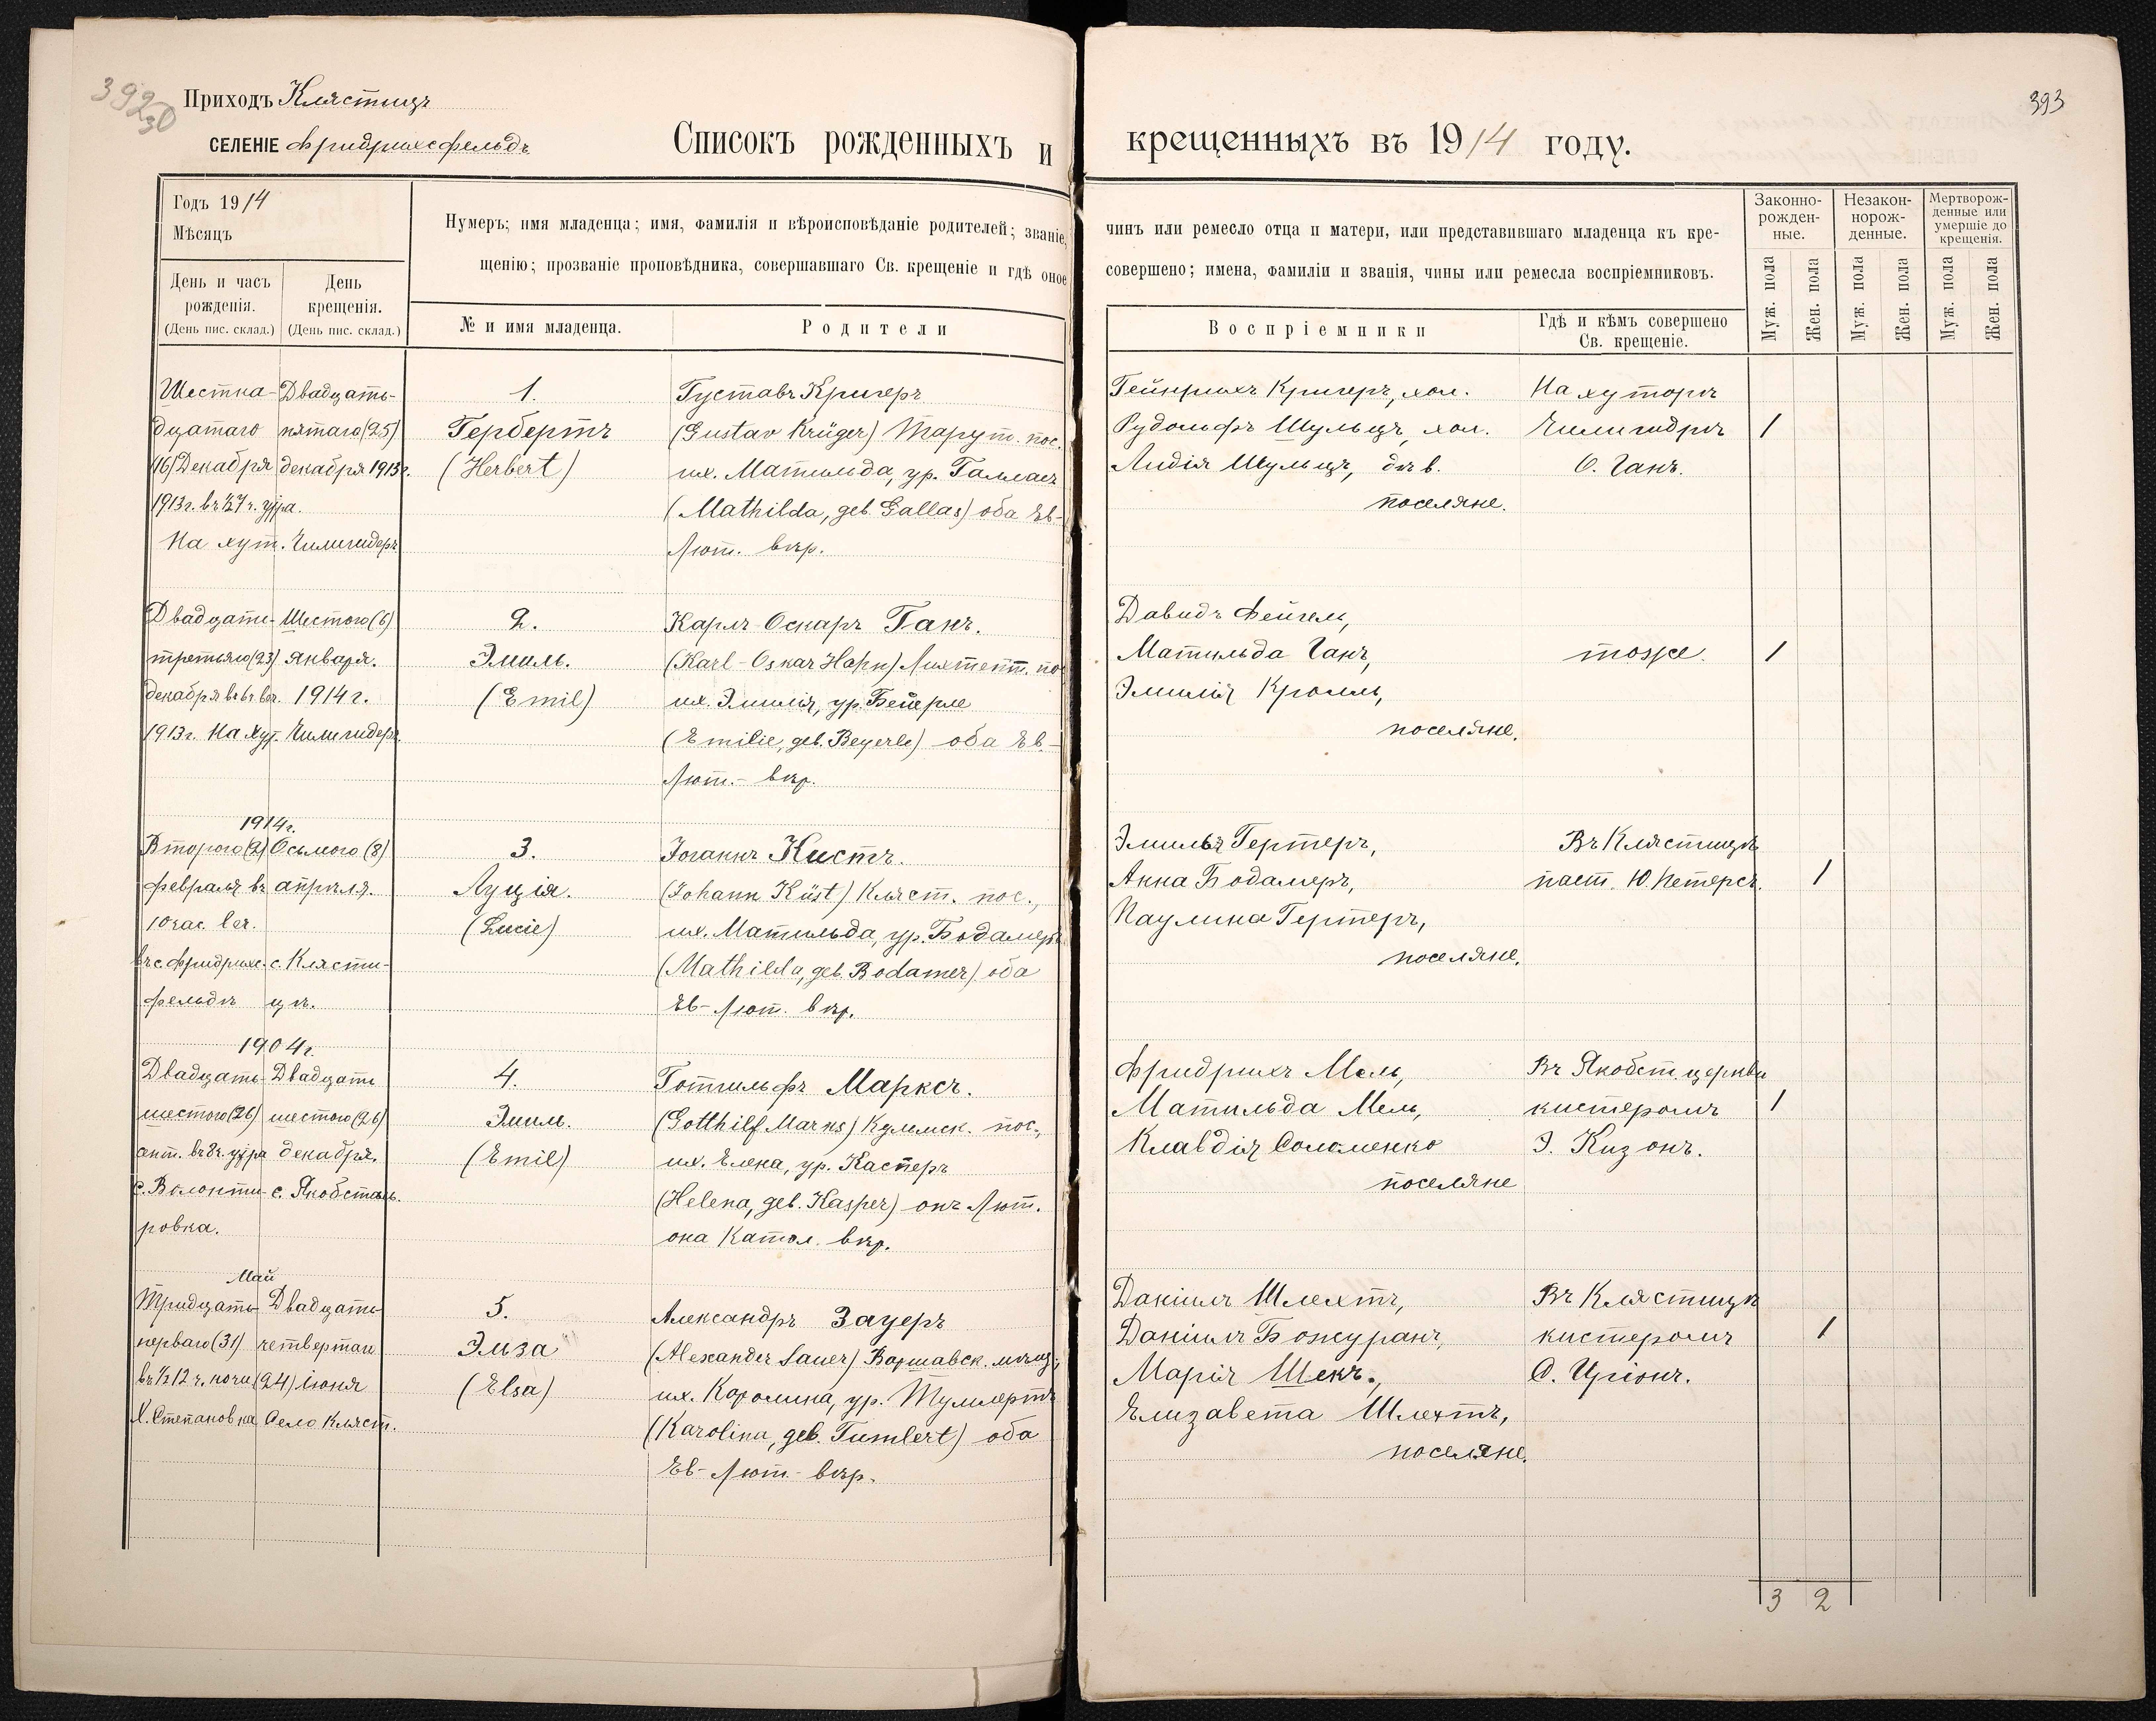 392
30
393
Приходъ Клястицъ
СЕЛЕНІЕ Фридрихсфельдъ
Списокъ рожденныхъ и крещенныхъ въ 1914 году.
Годъ 1914
Мѣсяцъ
День и часъ рожденія.
(День пис. склад.)
День крещенія.
(День пис. склад.)
Нумеръ; имя младенца; имя, фамилія и вѣроисповѣданіе родителей; званіе,
чинъ или ремесло отца и матери, или представившаго младенца къ кре-
щенію; прозваніе проповѣдника, совершавшаго Св. крещеніе и гдѣ оное
совершено; имена, фамиліи и званія, чины или ремесла воспріемниковъ.
№ и имя младенца.
Родители
Воспріемники
Гдѣ и кѣмъ совершено
Св. крещеніе.
Законно-
рожден-
ные.
Незакон-
норож-
денные.
Мертворож-
денные или
умершіе до
крещенія.
Муж. пола
Жен. пола
Муж. пола
Жен. пола
Муж. пола
Жен. пола
Шестна-
дцатаго
(16) Декабря
1913 г. въ ½7 ч. утра.
На хут. Чилигидеръ
Двадцать-
пятаго (25)
декабря 1913 г.
1.
Гербертъ
(Herbert)
Густавъ Кригеръ
(Gustav Krüger) Тарут. пос.
их. Матильда, ур. Галласъ
(Mathilda, geb. Gallas) оба Ев-
Лют. вѣр.
Гейнрихъ Кригеръ, хол.
Рудольфъ Шульцъ, хол.
Лидія Шульцъ, дѣв.
поселяне.
На хуторѣ
Чилигидрѣ
О. Ганъ.
1
Двадцать-
третьяго (23)
декабря
1913 г. На хут. Чилигидеръ.
Шестого (6)
Января.
1914 г.
2.
Эмиль.
(Emil)
Карлъ-Оскаръ Ганъ.
(Karl-Oskar Hahn) Лихтент. пос
их. Эмилія, ур. Бейерле
(Emilie, geb. Beyerle) оба Ев.-
Лют.- вѣр.
Давидъ Фейгель,
Матильда Ганъ,
Эмилія Кролль,
поселяне.
тоже.
1
1914 г.
Второго (2)
февраля въ
10 час. веч.
въ с. Фридрихс-
фельдѣ
Осьмого (8)
апрѣля.
с. Клясти-
цѣ.
3.
Луція.
(Lucie)
Іоганнъ Кистъ.
(Johann Küst) Кляст. пос.,
их. Матильда, ур. Бодамеръ
(Mathilda, geb. Bodamer) оба
Ев-Лют. вѣр.
Эмиль Гертеръ,
Анна Бодамеръ,
Паулина Гертеръ,
поселяне.
Въ Клястицѣ
паст. Ю. Петерсъ.
1
1904 г.
Двадцать-
шестого (26)
въ 8 ч. утра
с. Волонти-
ровка.
Двадцать
шестого (26)
декабря.
с. Якобсталь.
4.
Эмиль.
(Emil)
Готтильфъ Марксъ.
(Gotthilf Marks) Кульмск. пос.,
их. Елена, ур. Касперъ
(Helena, geb. Kasper) онъ Лют.
она Катол. вѣр.
Фридрихъ Мель,
Матильда Мель,
Клавдія Соломенко
поселяне
Въ Якобст. церкви
кистеромъ
Э. Кизонъ.
1
Май
Тридцать
перваго (31)
въ ½12 ч. ночи
Х. Степановка
Двадцать
четвертаго
(24) Іюня
Село Кляст.
5.
Эльза
(Elsa)
Александръ Зауеръ
(Alexander Sauer) Варшавск. мѣщ.,
их. Каролина, ур. Тумлертъ
(Karolina, geb. Tumlert) оба
Ев-Лют- вѣр.
Даніилъ Шлехтъ,
Даніилъ Божуранъ,
Марія Шекъ.,
Елизавета Шлехтъ,
поселяне.
Въ Клястицѣ
кистеромъ
1
3
2